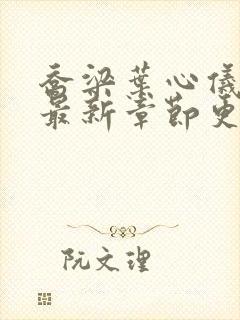 乔梁叶心仪
最新章节更
阮文理